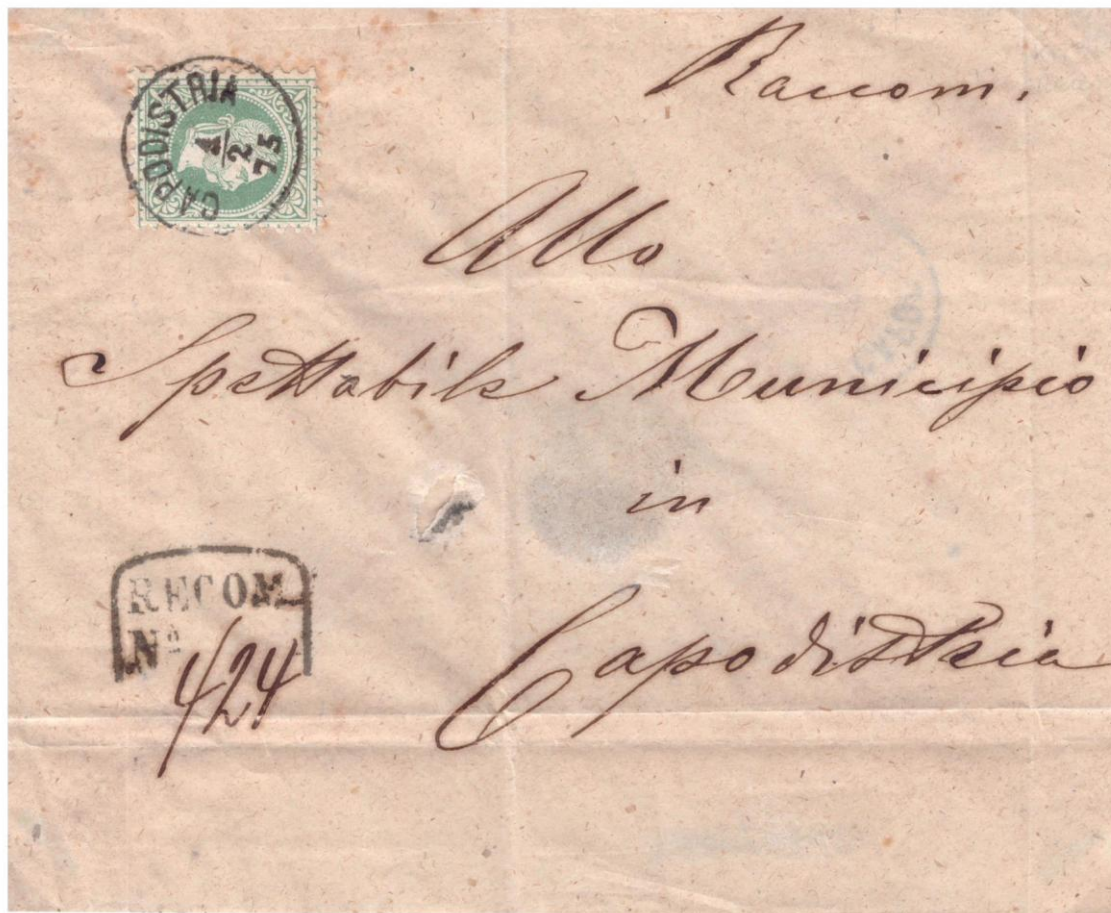 CAPODISTRIA
4
2
75
Raccom.
Allo
Spettabile Municipio
in
Capodistria
RECOM
Nº
424